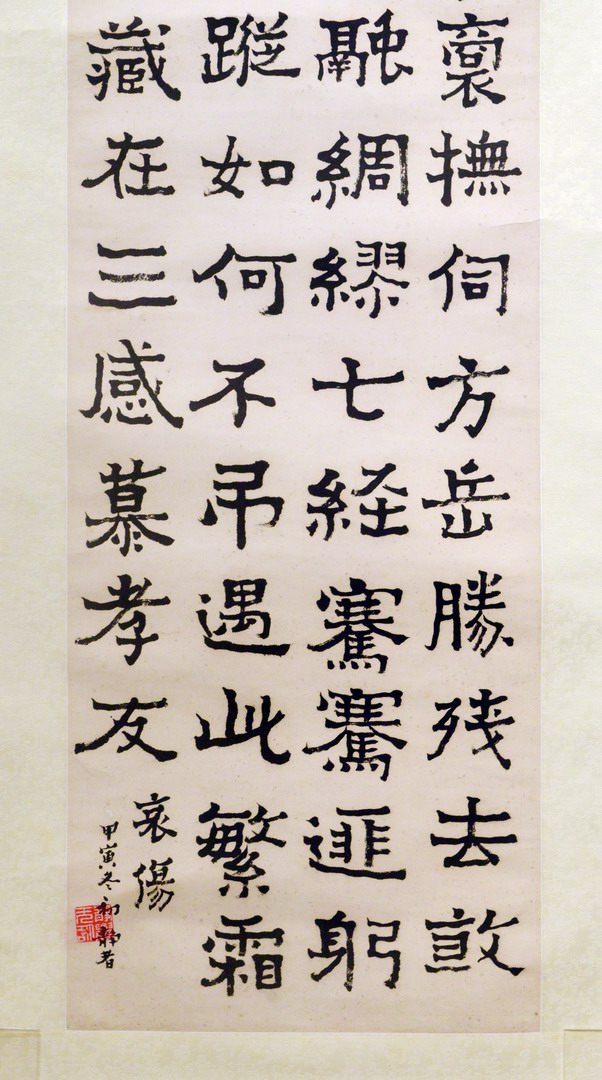 撫伺方岳勝残去殺
融綢繆七経騫騫匪躬
蹤如何不吊遇此繁霜
藏在三感慕孝友
哀傷
甲寅冬初静者